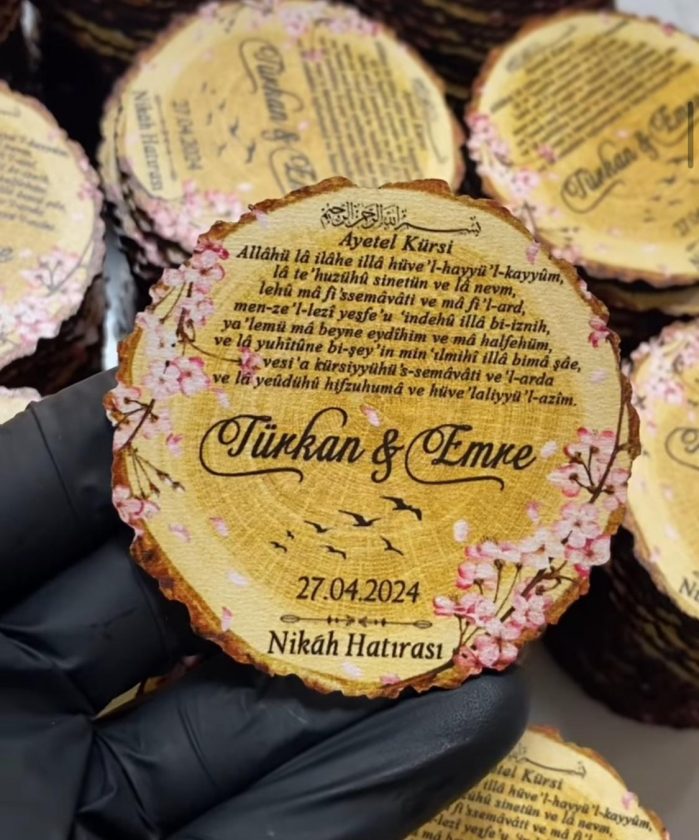 بسم الله الرحمن الرحيم
Ayetel Kürsi
Allâhü lâ ilâhe illâ hüve'l-hayyü'l-kayyûm,
lâ te'huzühû sinetün ve lâ nevm,
lehû mâ fi'ssemâvâti ve mâ fi'l-ard,
men-ze'l-lezî yeşfe'u 'indehû illâ bi-iznih,
ya'lemü mâ beyne eydîhim ve mâ halfehüm,
ve lâ yuhîtûne bi-şey'in min 'ılmihî illâ bimâ şâe,
vesi'a kürsiyyühü's-semâvâti ve'l-arda
ve lâ yeûdühû hifzuhumâ ve hüve'laliyyü'l-azîm.
Türkan & Emre
27.04.2024
Nikâh Hatırası
Türkan &
27.04.2024
Nikâh Hatırası
Türkan & Em